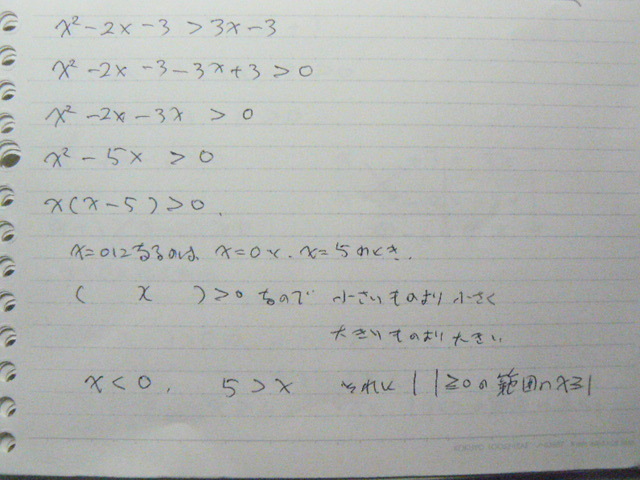 x²-2x-3>3x-3
x²-2x-3-3x+3>0
x²-2x-3x>0
x²-5x>0
x(x-5)>0.
x=0になるのは x=0と、x=5のとき.
( x )>0 なので 小さいものより 小さく
大きいものより 大きい
x<0, 5>x それと | |≧0の範囲 x≧1